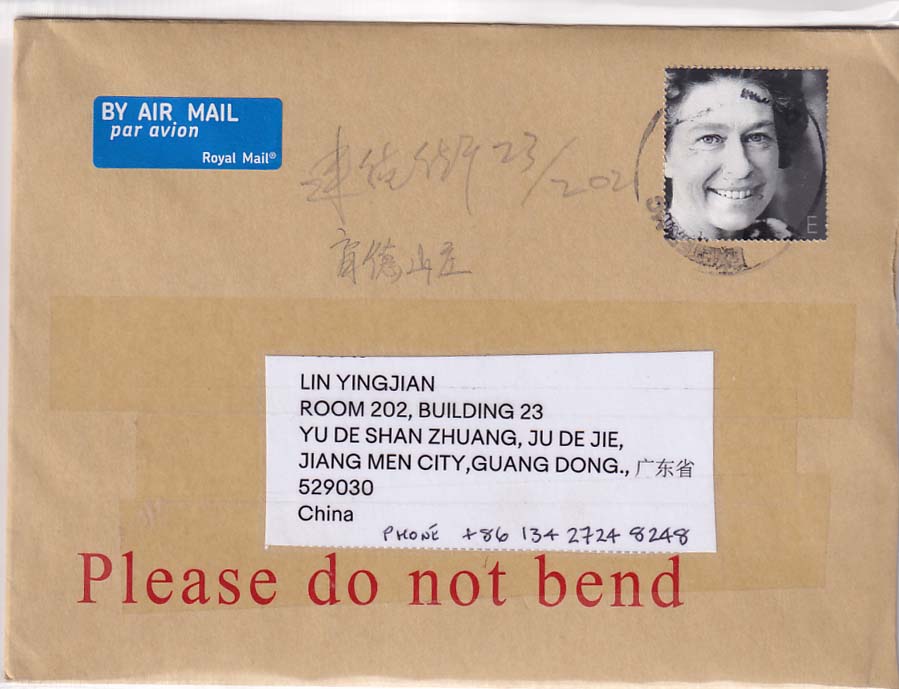 BY AIR MAIL
par avion
Royal Mail®
23/202
育德山庄
E
LIN YINGJIAN
ROOM 202, BUILDING 23
YU DE SHAN ZHUANG, JU DE JIE,
JIANG MEN CITY,GUANG DONG., 广东省
529030
China
PHONE +86 134 2724 8248
Please do not bend